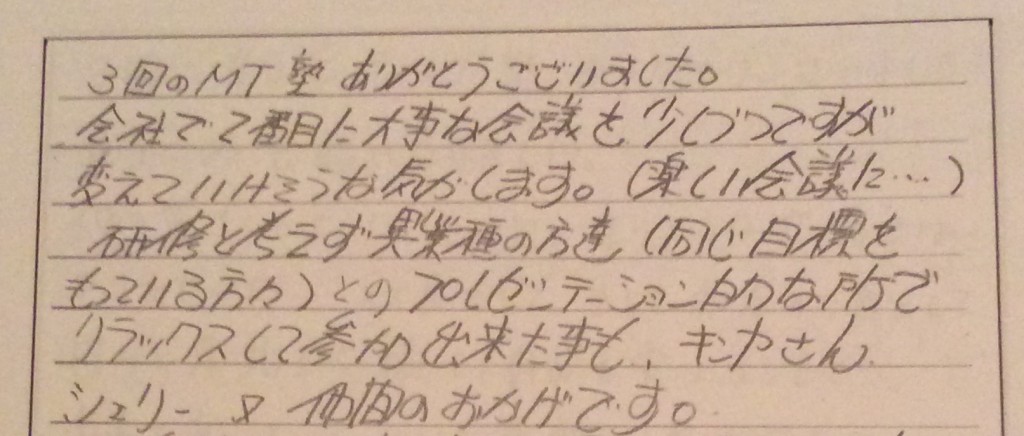 3回のMT塾ありがとうございました。
会社で2番目に大事な会議を少しづつですが
変えていけそうな気がします。(楽しい会議に…)
研修と考えず異業種の方達(同じ目標を
もっている方々)とのプレゼンテーション的な所で
リラックスして参加出来た事も、キンヤさん
シェリー 又 仲間のおかげです。